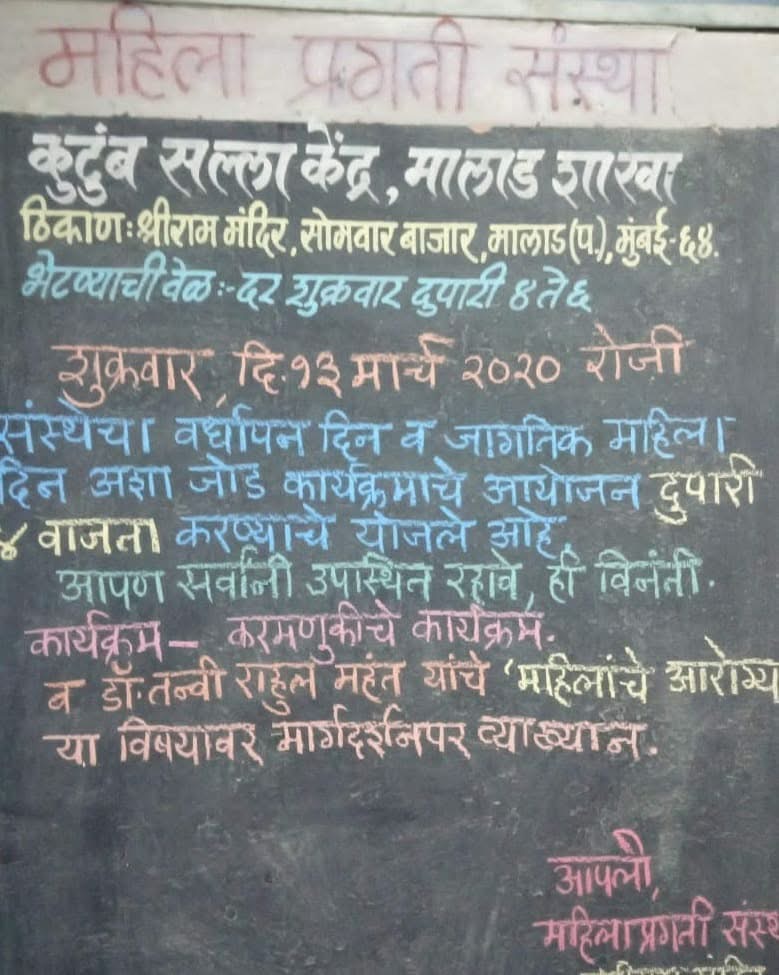 महिला प्रगती संस्था
कुटुंब सल्ला केंद्र, मालाड शाखा
ठिकाण: श्रीराम मंदिर, सोमवार बाजार, मालाड (प.), मुंबई-६४.
भेटण्याची वेळ :- दर शुक्रवार दुपारी ४ ते ६
शुक्रवार, दि. १३ मार्च २०२० रोजी
संस्थेचा वर्धापन दिन व जागतिक महिला
दिन अशा जोड कार्यक्रमाचे आयोजन दुपारी
४ वाजता करण्याचे योजले आहे.
आपण सर्वांनी उपस्थित रहावे, ही विनंती.
कार्यक्रम – करमणुकीचे कार्यक्रम.
व डॉ. तन्वी राहुल महंत यांचे 'महिलांचे आरोग्य
या विषयावर मार्गदर्शनपर व्याख्यान.
आपली,
महिला प्रगती संस्थ